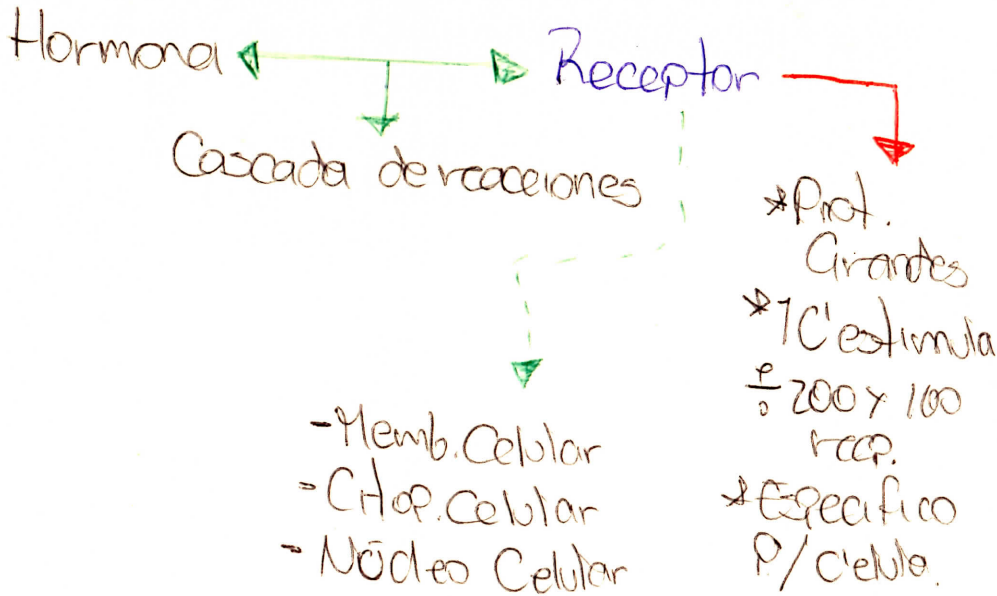 Hormona
Receptor
Cascada de reacciones
*Prot.
Grandes
*1C'estimula
200 y 100
recp.
*Especifico
P/Celula.
-Memb. Celular
-Citop. Celular
-Núcleo Celular